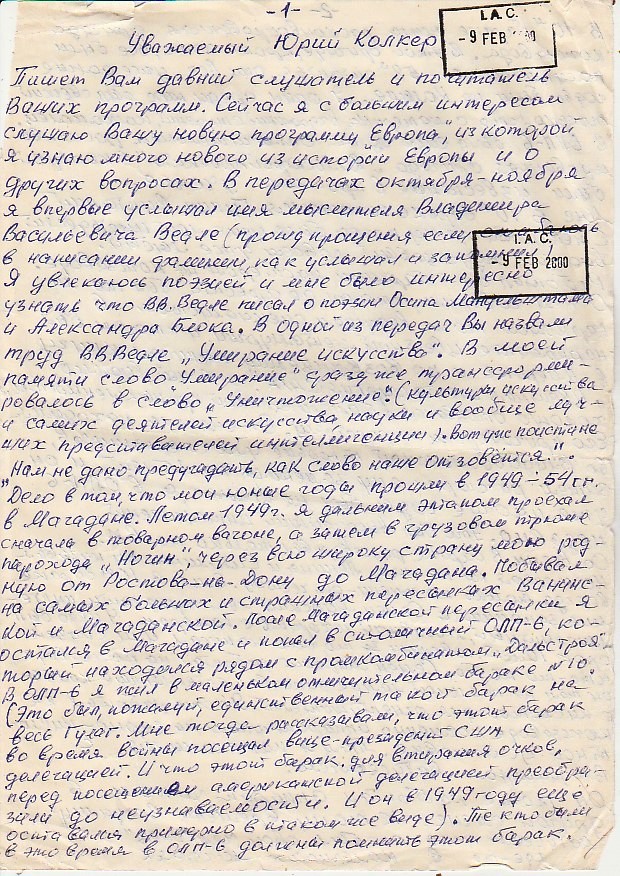 -1-
I.A.C.
- 9 FEB
Уважаемый Юрий Колкер
Пишет Вам давний слушатель и почитатель
Ваших программ. Сейчас я с большим интересом
слушаю Вашу новую программу „Европа", из которой
я узнаю много нового из истории Европы и о
других вопросах. В передачах октября-ноября
я впервые услышал имя мыслителя Владимира
Васильевича Ведле (прошу прощения если
I.A.C.
- 9 FEB 2000
в написании фамилии, как услышал и запомнил)
Я увлекаюсь поэзией и мне было интересно
узнать что В.В.Ведле писал о поэзии Осипа Мандельштама
и Александра Блока. В одной из передач Вы назвали
труд В.В.Ведле „Умирание искусства". В моей
памяти слово „Умирание" сразу же трансформи-
ровалось в слово „Уничтожение". (культуры искусства
и самих деятелей искусства, науки и вообще луч-
ших представителей интеллигенции). Вот уж поистине
„Нам не дано предугадать, как слово наше отзовётся".
Дело в том, что мои юные годы прошли в 1949-54 гг.
в Магадане. Летом 1949г. я дальним этапом проехал
сначала в товарном вагоне, а затем в грузовом трюме
парохода „Ногин", через всю широку страну мою род-
ную от Ростова-на-Дону до Магадана. Побывал
на самых больших и страшных пересылках Ванинс-
кой и Магаданской. После Магаданской пересылки я
остался в Магадане и попал в столичный ОЛП-6, ко-
торый находился рядом с промкомбинатом „Дальстроя".
В ОЛП-6 я жил в маленьком отличительном бараке №10.
(Это был, пожалуй, единственный такой барак на
весь Гулаг. Мне тогда рассказывали, что этот барак
во время войны посещал вице-президент США с
делегацией. И что этот барак для втирания очков,
перед посещением американской делегацией преобра-
зали до неузнаваемости. И он в 1949 году ещё
оставался примерно в таком же виде). Те кто были
в это время в ОЛП-6 должны помнить этот барак.